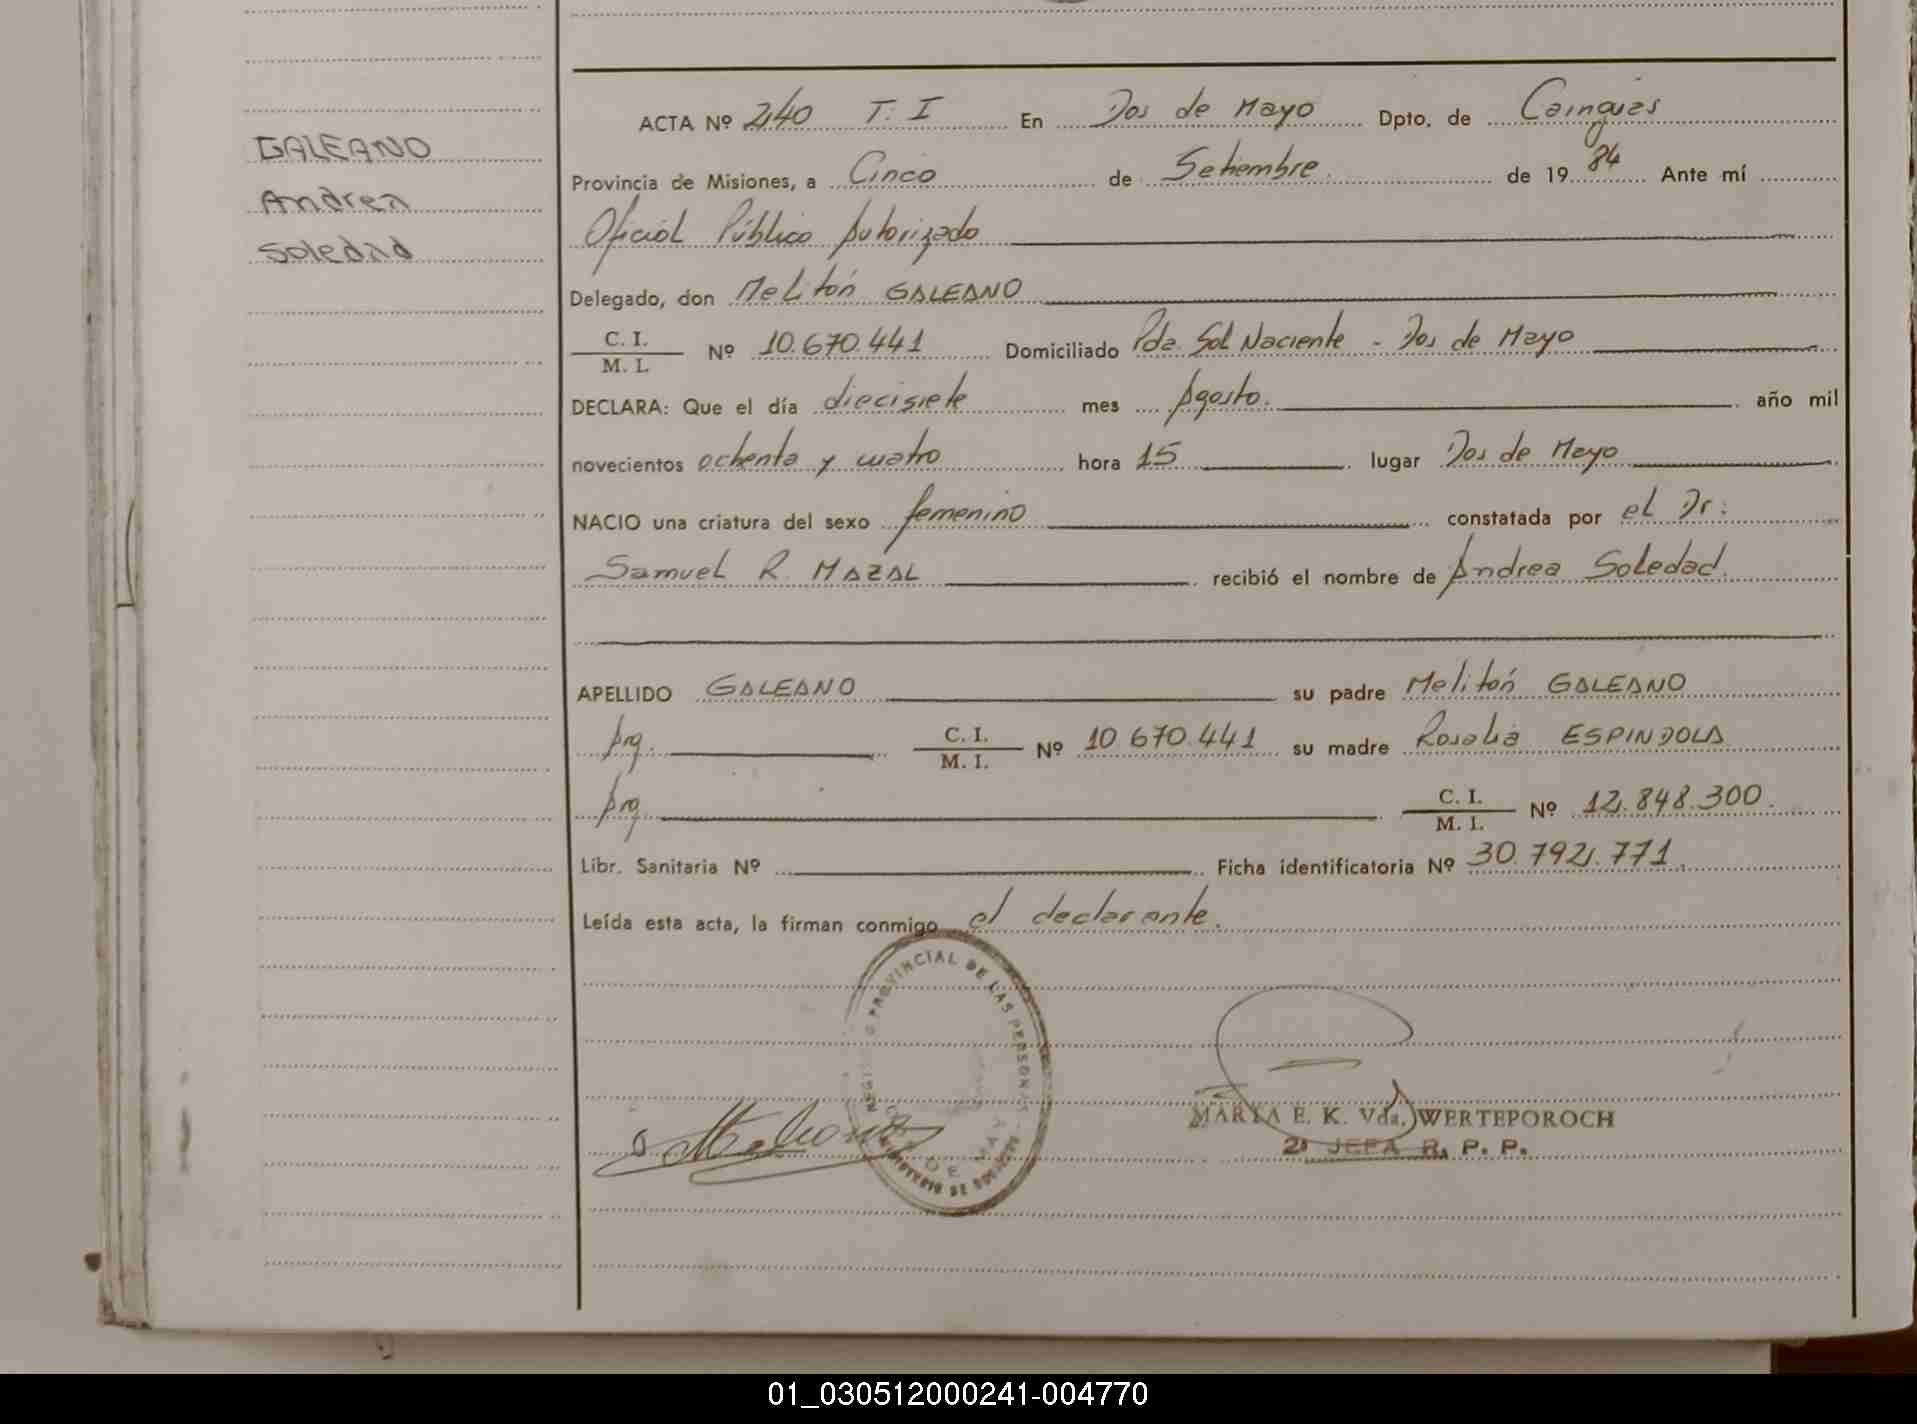 GALEANO
Andrea
Soledad
ACTA Nº 240 T. I En Dos de Mayo Dpto. de Cainguás
Provincia de Misiones, a Cinco de Setiembre. de 19 84 Ante mí
Oficial Público Autorizado
Delegado, don Melitón GALEANO
C. I.
M. I. Nº 10.670.441 Domiciliado Pda. Sol Naciente - Dos de Mayo
DECLARA: Que el día diecisiete mes Agosto. año mil
novecientos ochenta y cuatro hora 15 lugar Dos de Mayo
NACIO una criatura del sexo femenino constatada por el Dr:
Samuel R. MAZAL recibió el nombre de Andrea Soledad.
APELLIDO GALEANO su padre Melitón GALEANO
Arg. C. I.
M. I. Nº 10 670.441 su madre Rosalia ESPINDOLA
Arg. C. I.
M. I. Nº 12.848.300.
Libr. Sanitaria Nº Ficha identificatoria Nº 30.792.771.
Leída esta acta, la firman conmigo el declarante.
PROVINCIAL DE LAS PERSONAS
DE MAYO
MINISTERIO DE GOBIERNO
MARIA E. K. Vda. WERTEPOROCH
2ª JEFA R. P. P.
01_030512000241-004770